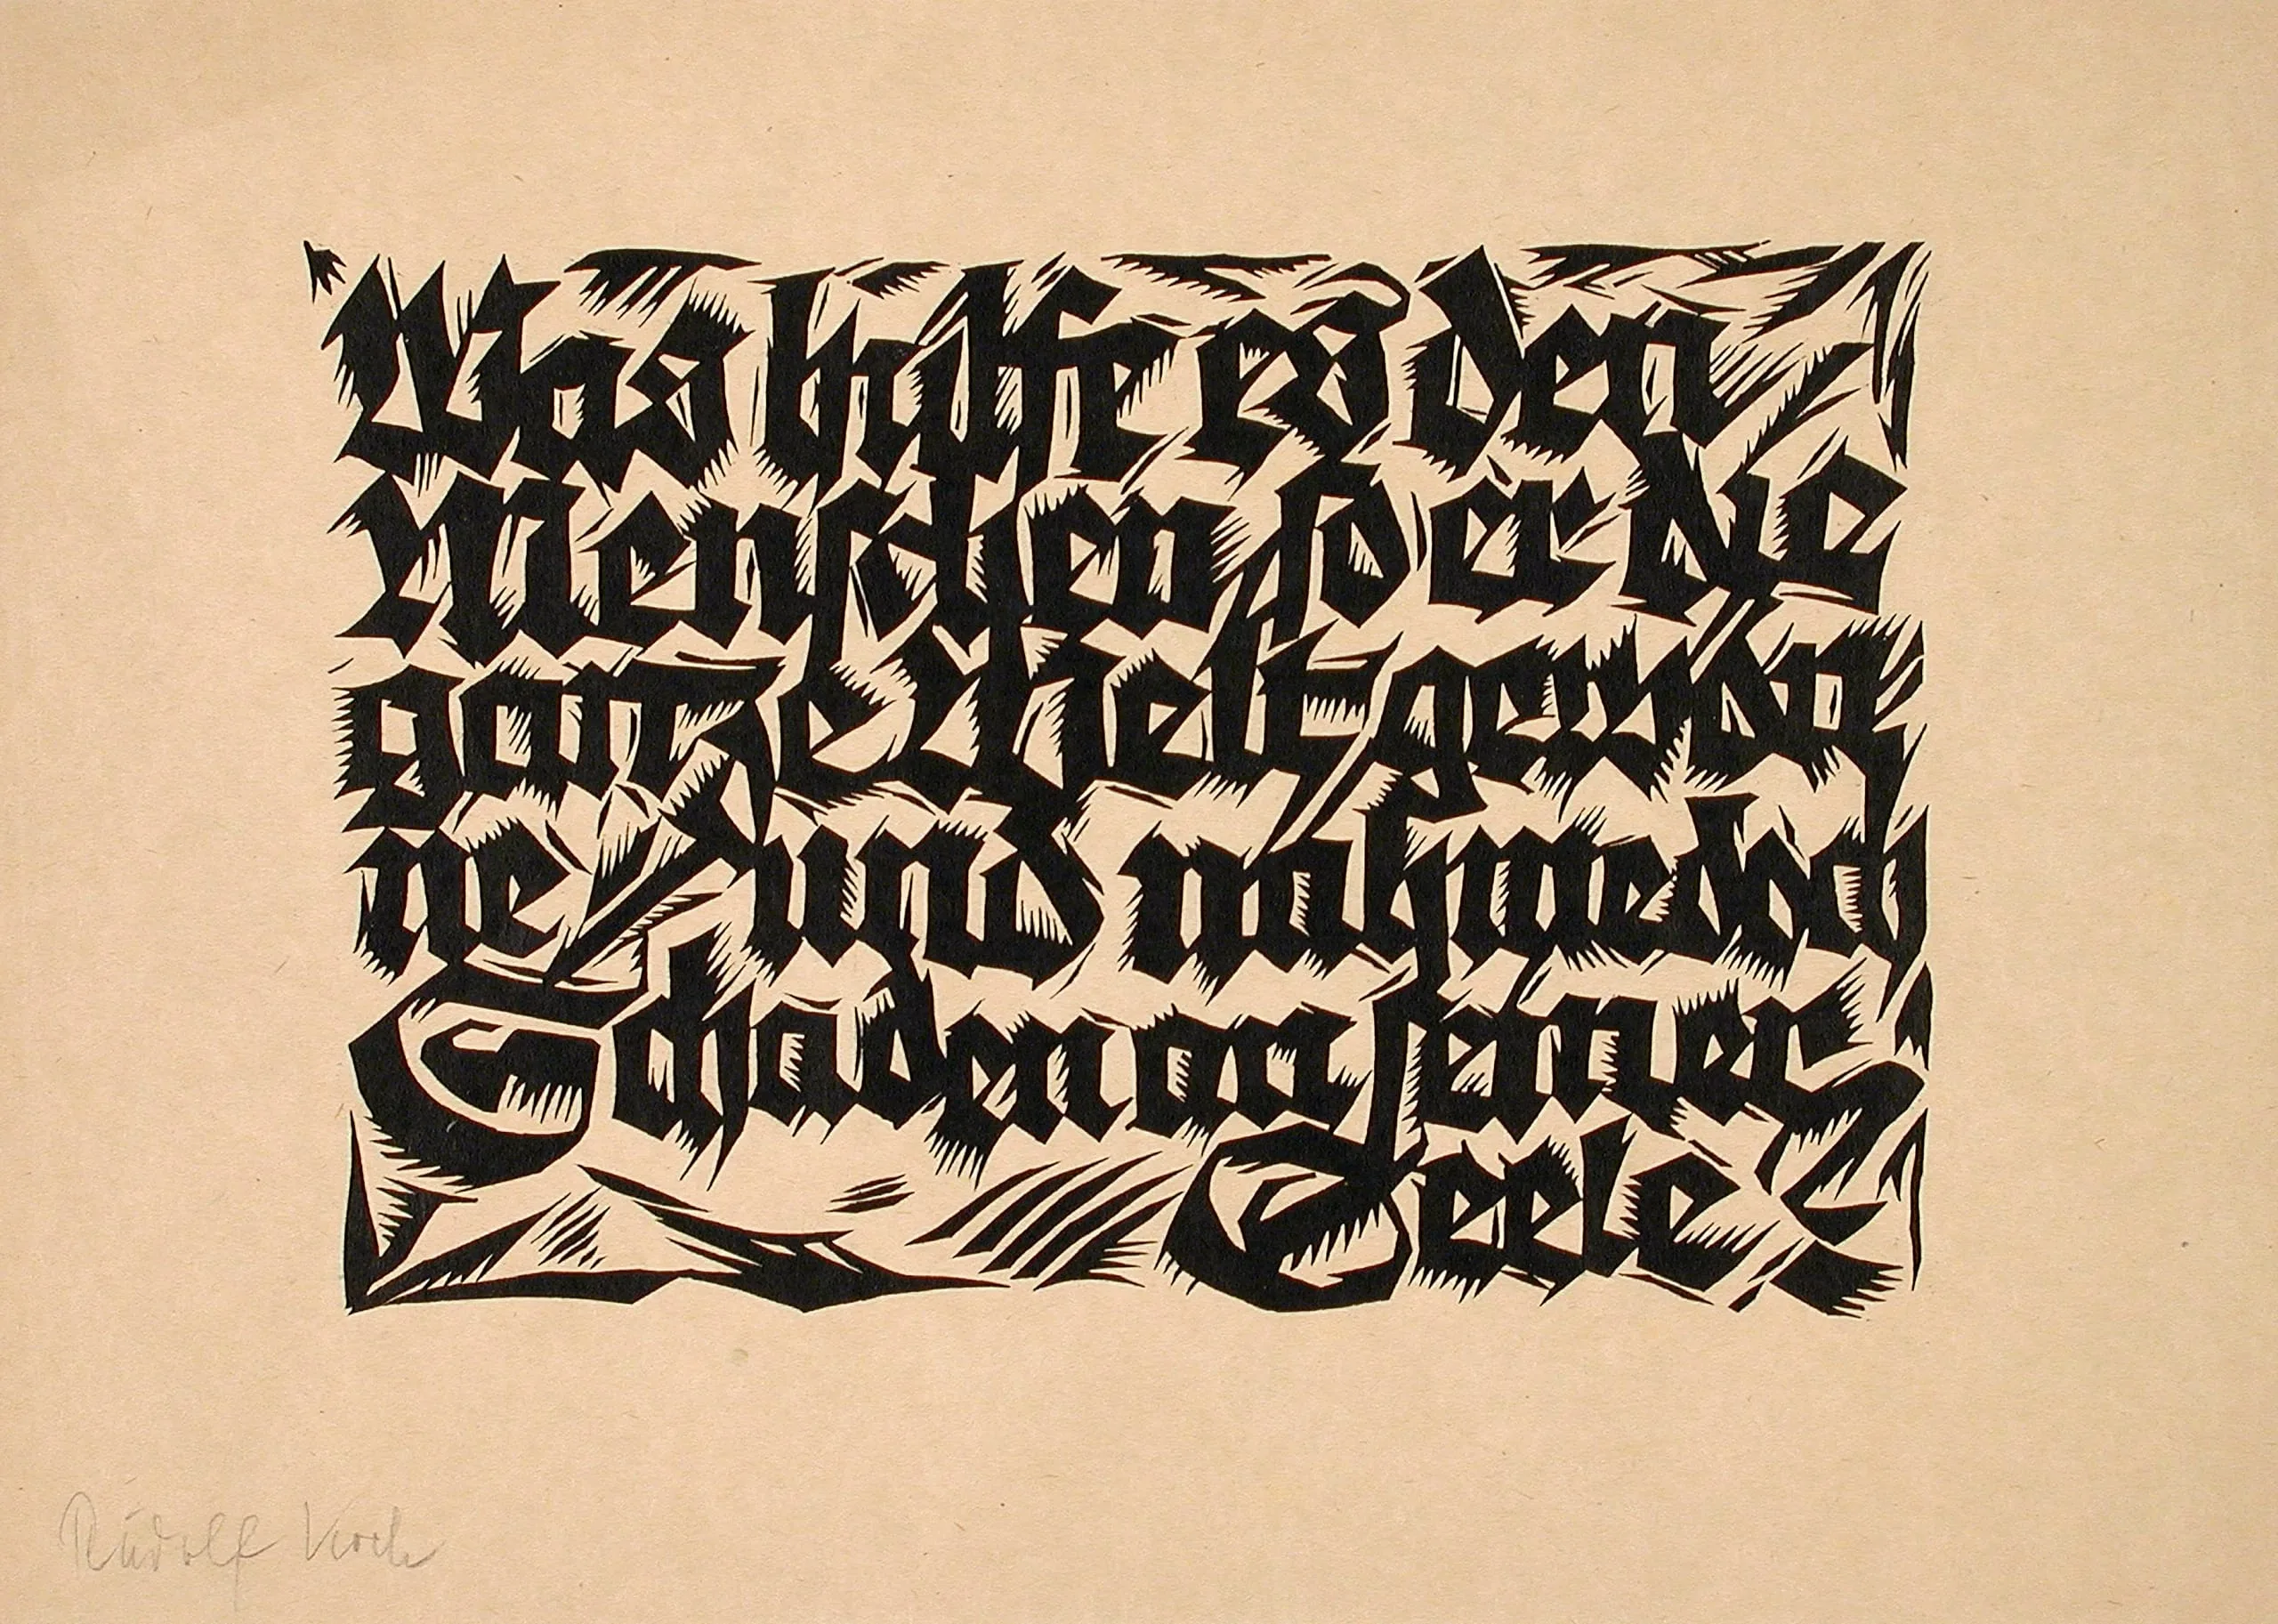 Was hülfe es den
Menschen so er die
ganze Welt gewön
ne / und nähme doch
Schaden an seiner
Seele
Rudolf Koch